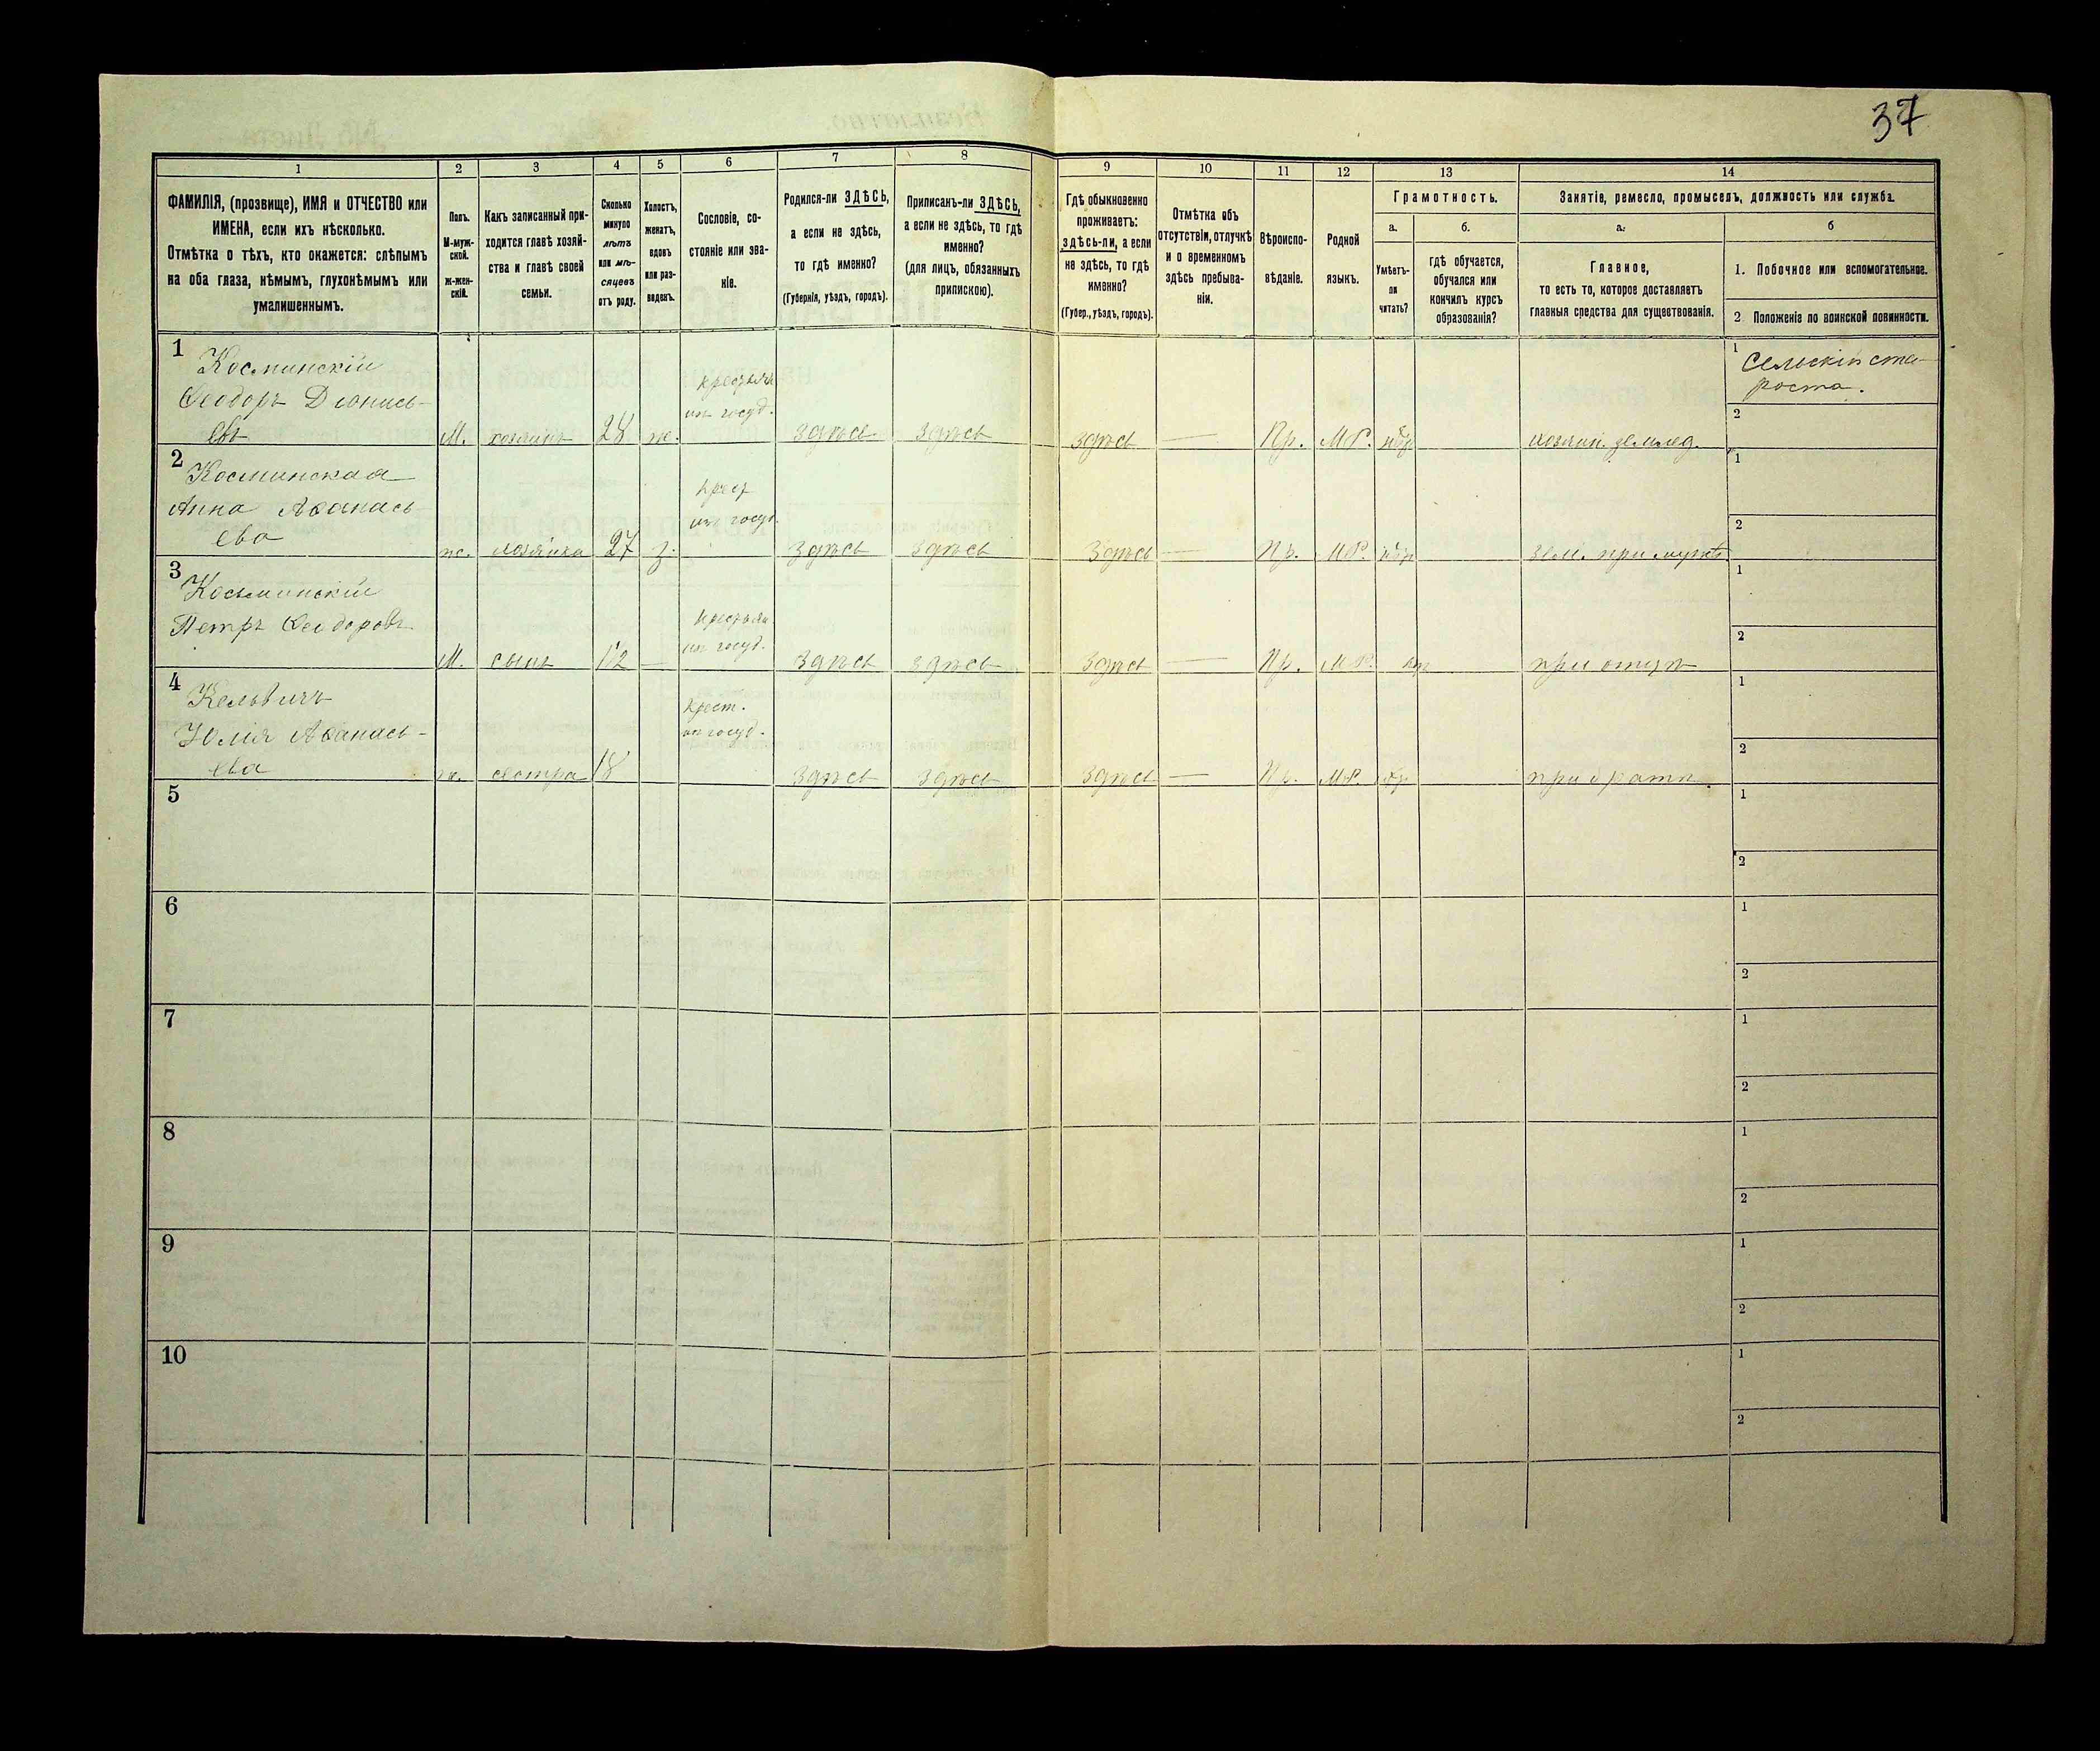 37
1
2
3
4
5
6
7
8
9
10
11
12
13
14
ФАМИЛІЯ, (прозвище), ИМЯ и ОТЧЕСТВО или
ИМЕНА, если ихъ нѣсколько.
Отмѣтка о тѣхъ, кто окажется: слѣпымъ
на оба глаза, нѣмымъ, глухонѣмымъ или
умалишеннымъ.
Полъ.
М-муж-
ской.
ж-жен-
скій.
Какъ записанный при-
ходится главѣ хозяй-
ства и главѣ своей
семьи.
Сколько
минуло
лѣтъ
или мѣ-
сяцевъ
отъ роду.
Холостъ,
женатъ,
вдовъ
или раз-
веденъ.
Сословіе, со-
стояніе или зва-
ніе.
Родился-ли ЗДѢСЬ,
а если не здѣсь,
то гдѣ именно?
(Губернія, уѣздъ, городъ).
Приписанъ-ли ЗДѢСЬ,
а если не здѣсь, то гдѣ
именно?
(для лицъ, обязанныхъ
припискою).
Гдѣ обыкновенно
проживаетъ:
здѣсь-ли, а если
не здѣсь, то гдѣ
именно?
(Губер., уѣздъ, городъ).
Отмѣтка объ
отсутствіи, отлучкѣ
и о временномъ
здѣсь пребыва-
ніи.
Вѣроиспо-
вѣданіе.
Родной
языкъ.
Грамотность.
а.
Умѣетъ-
ли
читать?
б.
гдѣ обучается,
обучался или
кончилъ курсъ
образованія?
Занятіе, ремесло, промыселъ, должность или служба.
а.
Главное,
то есть то, которое доставляетъ
главныя средства для существованія.
б
1. Побочное или вспомогательное.
2 Положеніе по воинской повинности.
1
Косминскій
Ѳеодоръ Діонись-
евъ
М. хозяинъ 28 ж.
здѣсь здѣсь
здѣсь — Пр. М.Р.
хозяин. землед.
1 Сельскій ста-
роста.
2
2
Косминская
Анна Аѳанась
ева
ж. хозяйка 27 з.
здѣсь здѣсь
здѣсь — Пр. М.Р.
зем. при мужѣ
1
2
3
Косьминскій
Петръ Ѳеодоровъ
М. сынъ 12 —
здѣсь здѣсь
здѣсь — Пр. М.Р.
при отцѣ
1
2
4
Юлія Аѳанась-
ева
ж. сестра 18
крест.
здѣсь здѣсь
здѣсь — Пр. М.Р.
при братѣ
1
2
5
1
2
6
1
2
7
1
2
8
1
2
9
1
2
10
1
2